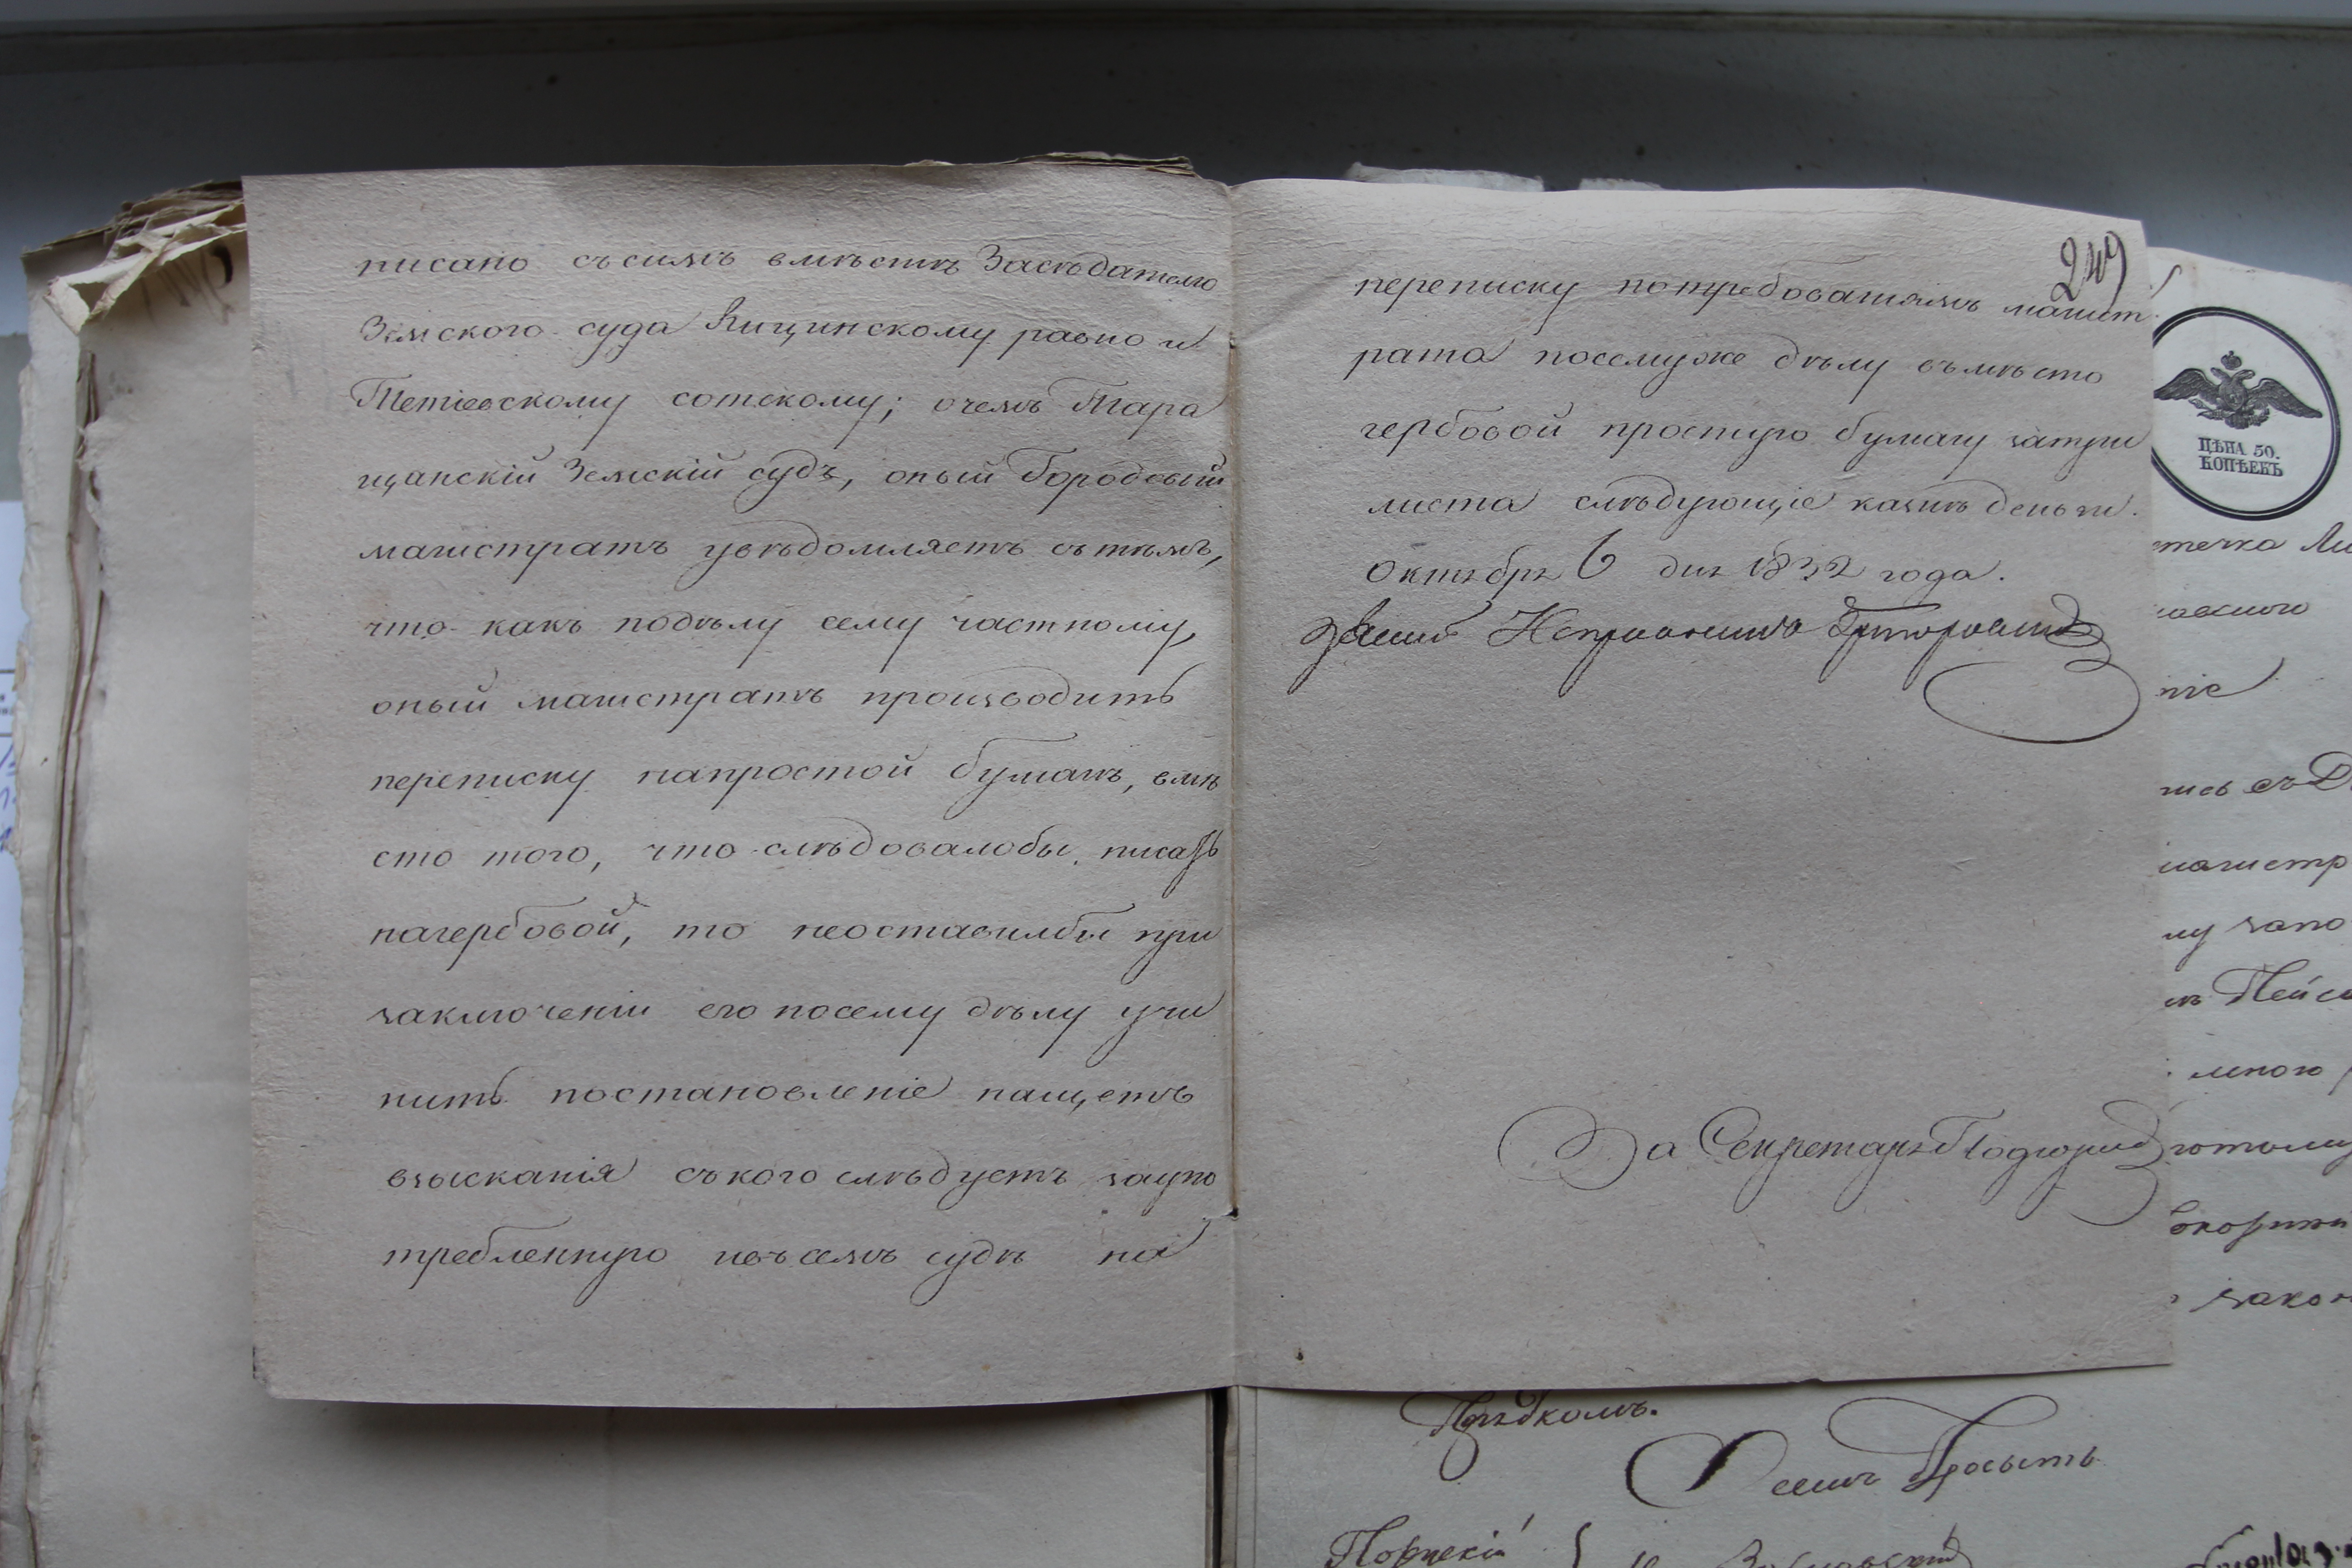 писано съ симъ вмѣстѣ Засѣдателю
Земского суда Кицинскому равно и
Тетіевскому сотскому; очемъ Тара
щанскій Земскій судъ, оный Городовый
магистратъ увѣдомляетъ сътѣмъ,
что какъ подѣлу сему частному,
оный магистратъ производитъ
переписку напростой бумагѣ, вмѣ
сто того, что слѣдовалобы писать
нагербовой, то неоставилбы при
заключеніи его посему дѣлу учи
нить постановленіе нащетъ
взысканія съкого слѣдуетъ заупо
требленную въ семъ судѣ на
249
переписку потребованіямъ магист
рата посемуже дѣлу въмѣсто
гербовой простую бумагу затри
листа слѣдующіе казнѣ деньги.
Октября 6 дня 1832 года.
За Секретаря
ЦѢНА 50.
КОПѢЕКЪ
течка Ли
ніе
магистр
му запо
мною
закон